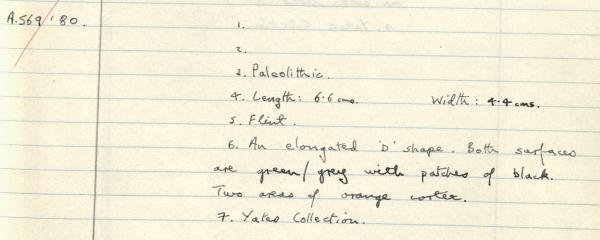 A.569/'80.
1.
2.
3. Paleolithic.
4. Length: 6.6 cms. Width: 4.4 cms.
5. Flint.
6. An elongated 'D' shape. Both surfaces
are green/grey with patches of black.
Two areas of orange cortex.
7. Yates Collection.